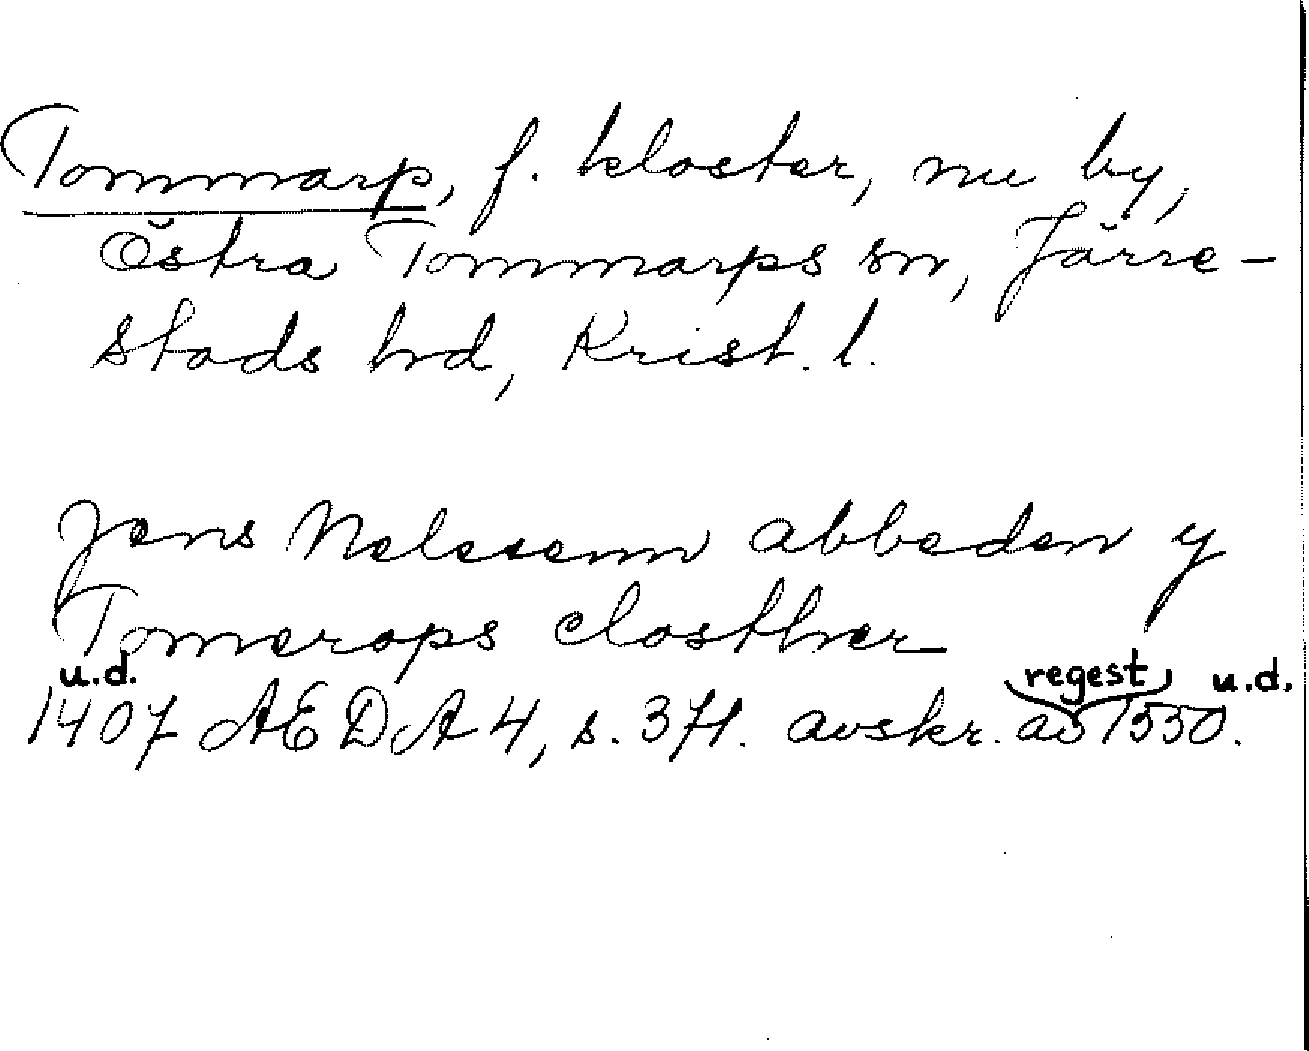 Tommarp, f. kloster, nu by,
Östra Tommarps sn, Järre-
stads hrd, Krist. l.
Jens Nelssenn abbeden y
Tomerops closther
u.d. regest u.d.
1407 AEDA 4, s. 371. avskr. av 1550.